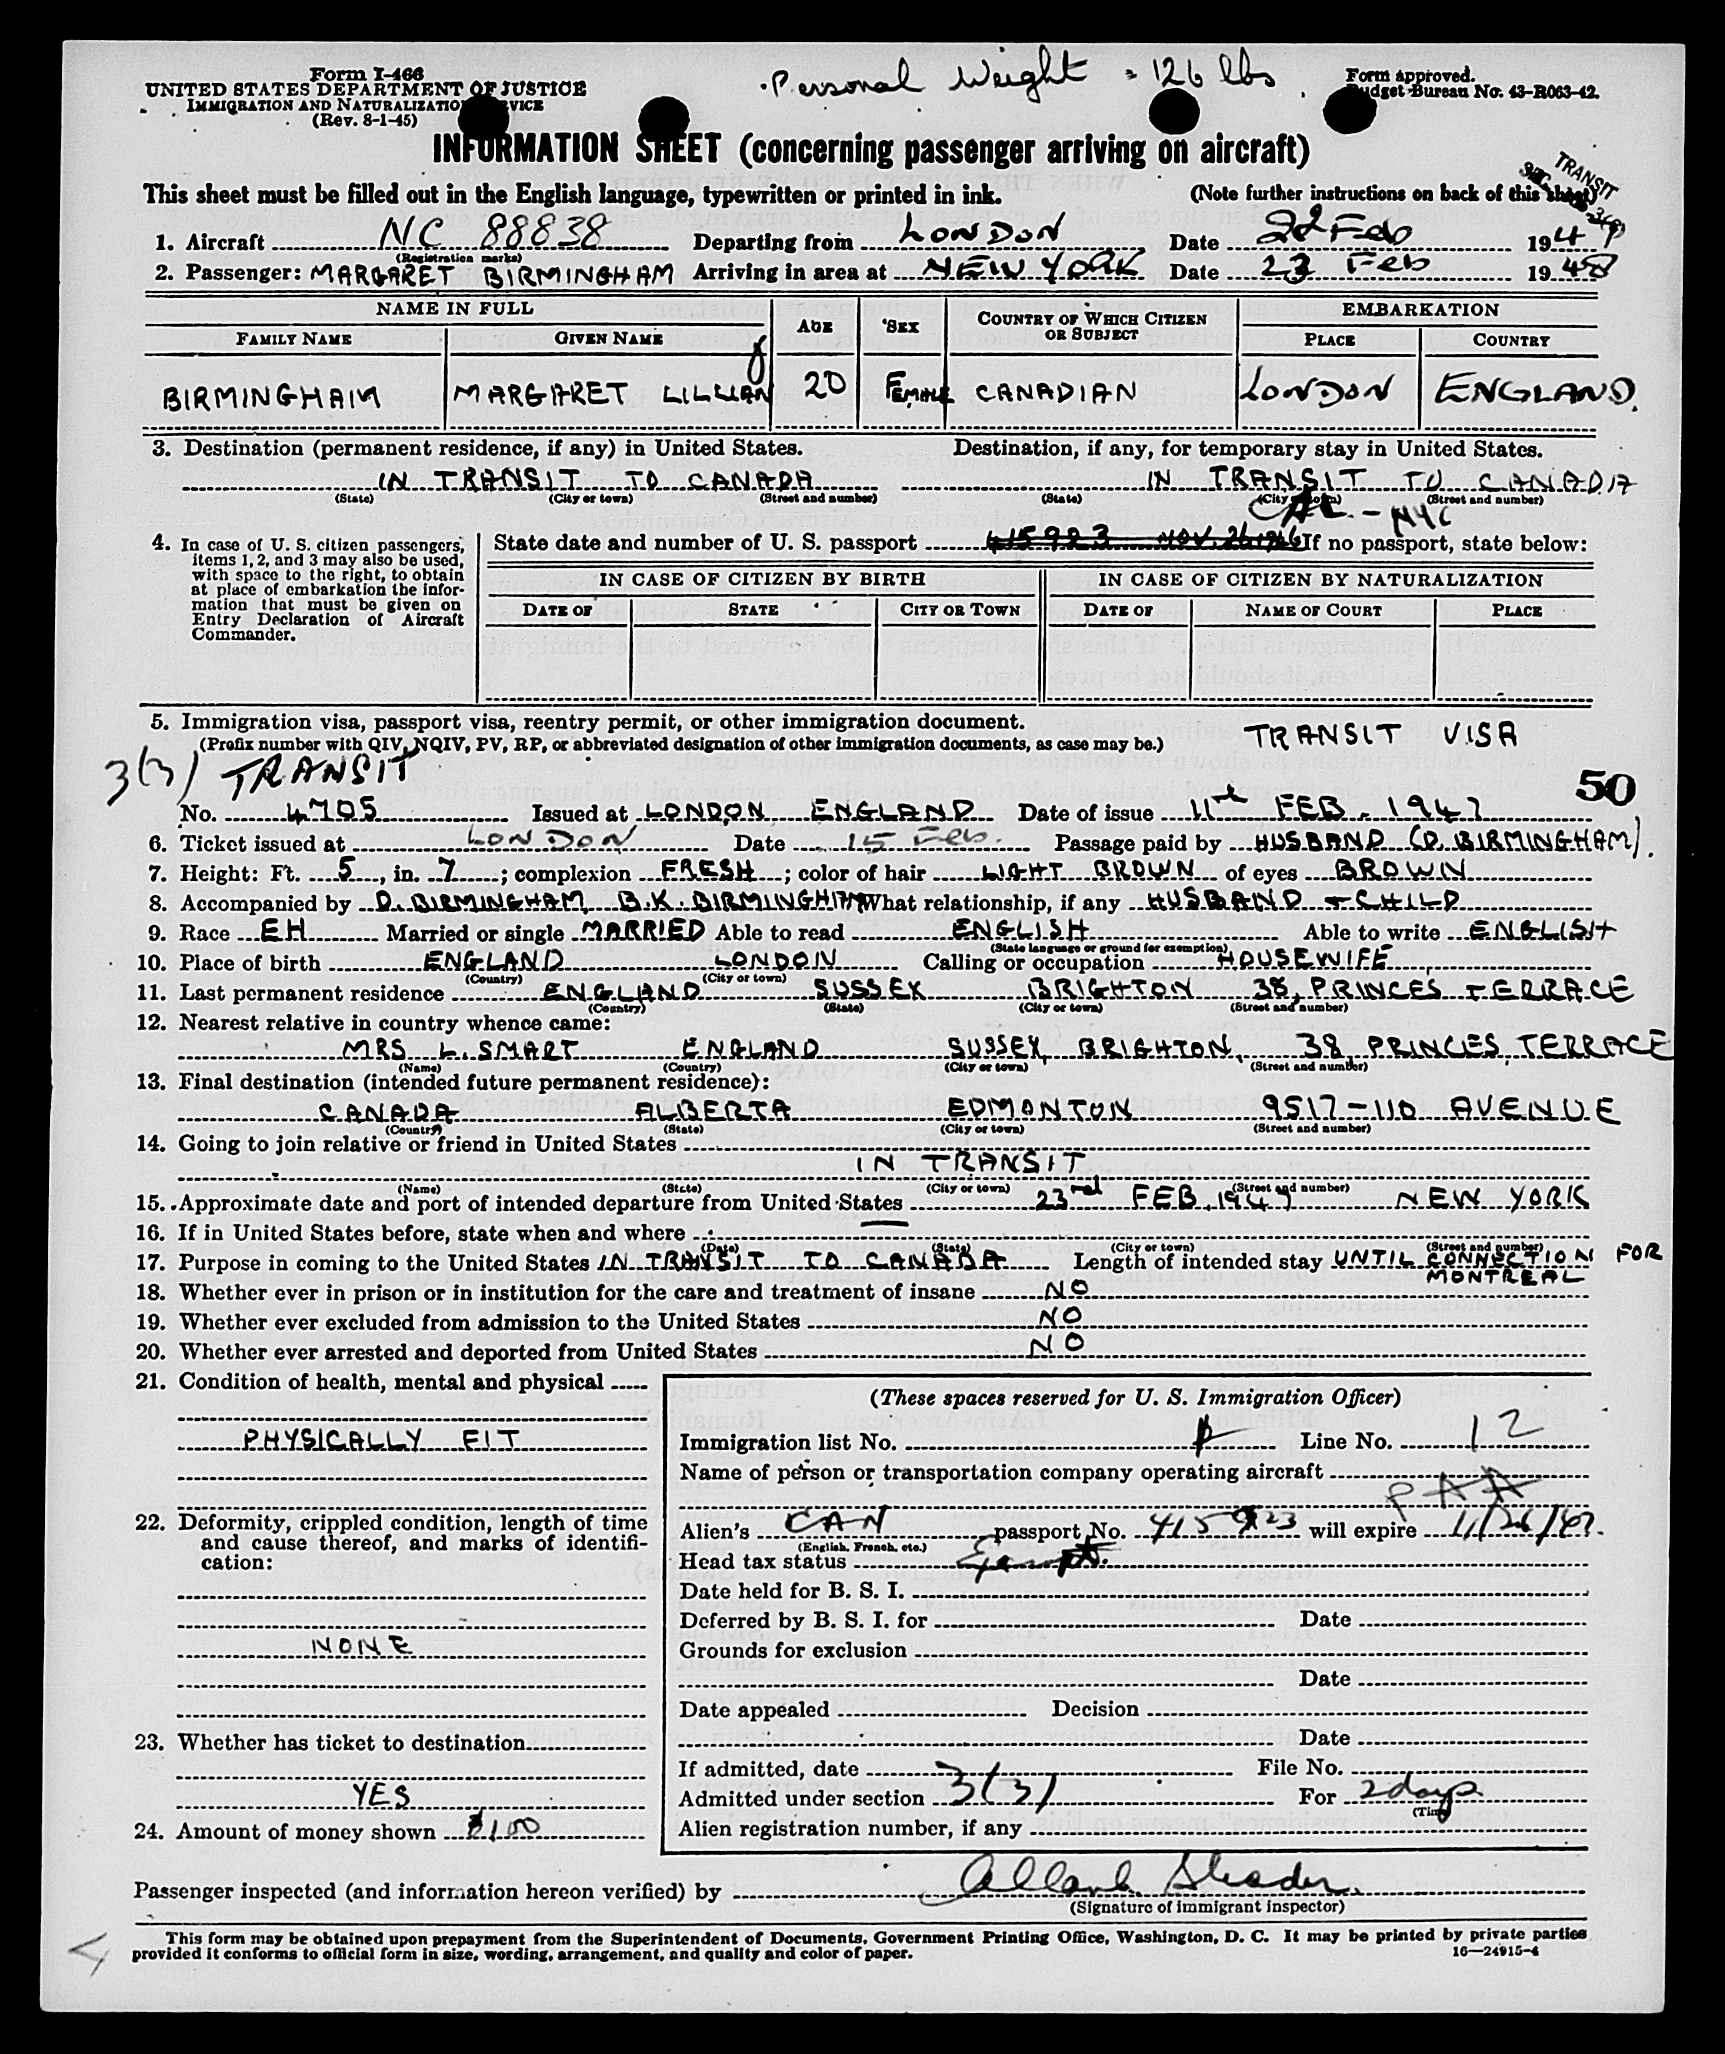 Personal Weight = 126 lbs
Form I-466
UNITED STATES DEPARTMENT OF JUSTICE
IMMIGRATION AND NATURALIZATION SERVICE
(Rev. 8-1-45)
Form approved.
Budget Bureau No. 43-R063-42.
INFORMATION SHEET (concerning passenger arriving on aircraft)
TRANSIT
This sheet must be filled out in the English language, typewritten or printed in ink. (Note further instructions on back of this sheet)
1. Aircraft NC 88838 Departing from LONDON Date 22 Feb 194
(Registration marks)
2. Passenger: MARGARET BIRMINGHAM Arriving in area at NEW YORK Date 23 Feb 194
NAME IN FULL AGE SEX COUNTRY OF WHICH CITIZEN OR SUBJECT EMBARKATION
FAMILY NAME GIVEN NAME PLACE COUNTRY
BIRMINGHAM MARGARET LILLIAN 20 FEMALE CANADIAN LONDON ENGLAND.
3. Destination (permanent residence, if any) in United States. Destination, if any, for temporary stay in United States.
IN TRANSIT TO CANADA IN TRANSIT TO CANADA
(State) (City or town) (Street and number) (State) (City or town) (Street and number)
NYC
4. In case of U. S. citizen passengers, items 1, 2, and 3 may also be used, with space to the right, to obtain at place of embarkation the information that must be given on Entry Declaration of Aircraft Commander.
State date and number of U. S. passport 415923 NOV. 26 1946 If no passport, state below:
IN CASE OF CITIZEN BY BIRTH IN CASE OF CITIZEN BY NATURALIZATION
DATE OF STATE CITY OR TOWN DATE OF NAME OF COURT PLACE
5. Immigration visa, passport visa, reentry permit, or other immigration document. TRANSIT VISA
(Prefix number with QIV, NQIV, PV, RP, or abbreviated designation of other immigration documents, as case may be.)
3(3) TRANSIT 50
No. 4705 Issued at LONDON ENGLAND Date of issue 11th FEB. 1947
6. Ticket issued at LONDON Date 15 Feb. Passage paid by HUSBAND (D. BIRMINGHAM).
7. Height: Ft. 5, in. 7; complexion FRESH; color of hair LIGHT BROWN of eyes BROWN
8. Accompanied by D. BIRMINGHAM B.K. BIRMINGHAM What relationship, if any HUSBAND + CHILD
9. Race EH Married or single MARRIED Able to read ENGLISH Able to write ENGLISH
(State language or ground for exemption)
10. Place of birth ENGLAND LONDON Calling or occupation HOUSEWIFE
(Country) (City or town)
11. Last permanent residence ENGLAND SUSSEX BRIGHTON 38, PRINCES TERRACE
(Country) (State) (City or town) (Street and number)
12. Nearest relative in country whence came:
MRS L. SMART ENGLAND SUSSEX, BRIGHTON, 38, PRINCES TERRACE
(Name) (Country) (City or town) (Street and number)
13. Final destination (intended future permanent residence):
CANADA ALBERTA EDMONTON 9517-110 AVENUE
(Country) (State) (City or town) (Street and number)
14. Going to join relative or friend in United States
IN TRANSIT
(Name) (State) (City or town) (Street and number)
15. Approximate date and port of intended departure from United States 23rd FEB, 1947 NEW YORK
16. If in United States before, state when and where —
(Date) (State) (City or town) (Street and number)
17. Purpose in coming to the United States IN TRANSIT TO CANADA Length of intended stay UNTIL CONNECTION FOR
MONTREAL
18. Whether ever in prison or in institution for the care and treatment of insane NO
19. Whether ever excluded from admission to the United States NO
20. Whether ever arrested and deported from United States NO
21. Condition of health, mental and physical
PHYSICALLY FIT
22. Deformity, crippled condition, length of time and cause thereof, and marks of identification:
NONE
23. Whether has ticket to destination
YES
24. Amount of money shown $100
(These spaces reserved for U. S. Immigration Officer)
Immigration list No. Line No. 12
Name of person or transportation company operating aircraft
PAA
Alien's CAN passport No. 415923 will expire 11/26/
(English, French, etc.)
Head tax status Exempt.
Date held for B. S. I.
Deferred by B. S. I. for Date
Grounds for exclusion
Date
Date appealed Decision
Date
If admitted, date File No.
Admitted under section 3(3) For 2 days
(Time)
Alien registration number, if any
Passenger inspected (and information hereon verified) by
(Signature of immigrant inspector)
This form may be obtained upon prepayment from the Superintendent of Documents, Government Printing Office, Washington, D. C. It may be printed by private parties
provided it conforms to official form in size, wording, arrangement, and quality and color of paper. 16—24915-4